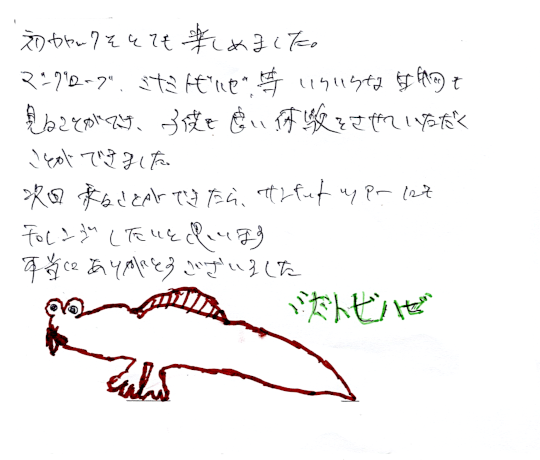 初カヤックをとても楽しめました。
マングローブ、ミナミトビハゼ、等 いろいろな生物を
見ることができ、子供も良い体験をさせていただく
ことができました。
次回来ることができたら、サンセットツアーにも
チャレンジしたいと思います
本当にありがとうございました
トビハゼ